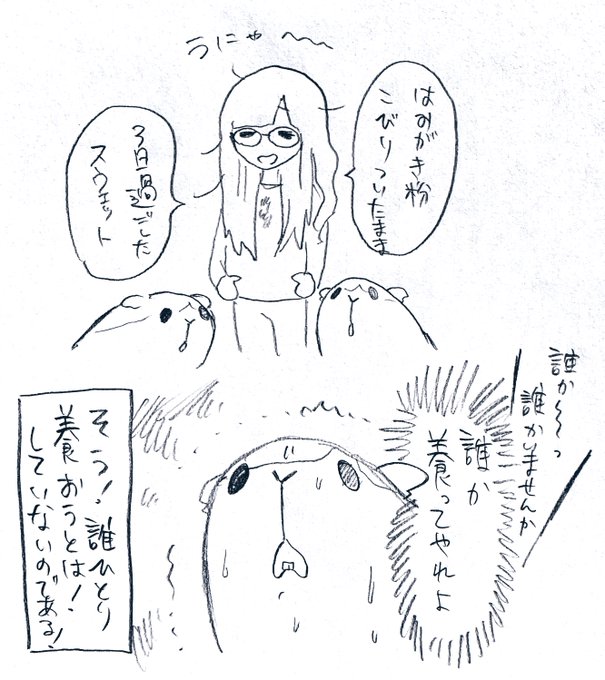 うにゃ〜〜
はみがき粉
こびりついたまま
3日過ごした
スウェット
誰か〜〜っ
誰かいませんか
誰か
養ってやれよ
そう!誰ひとり
養おうとは!
していないのである!